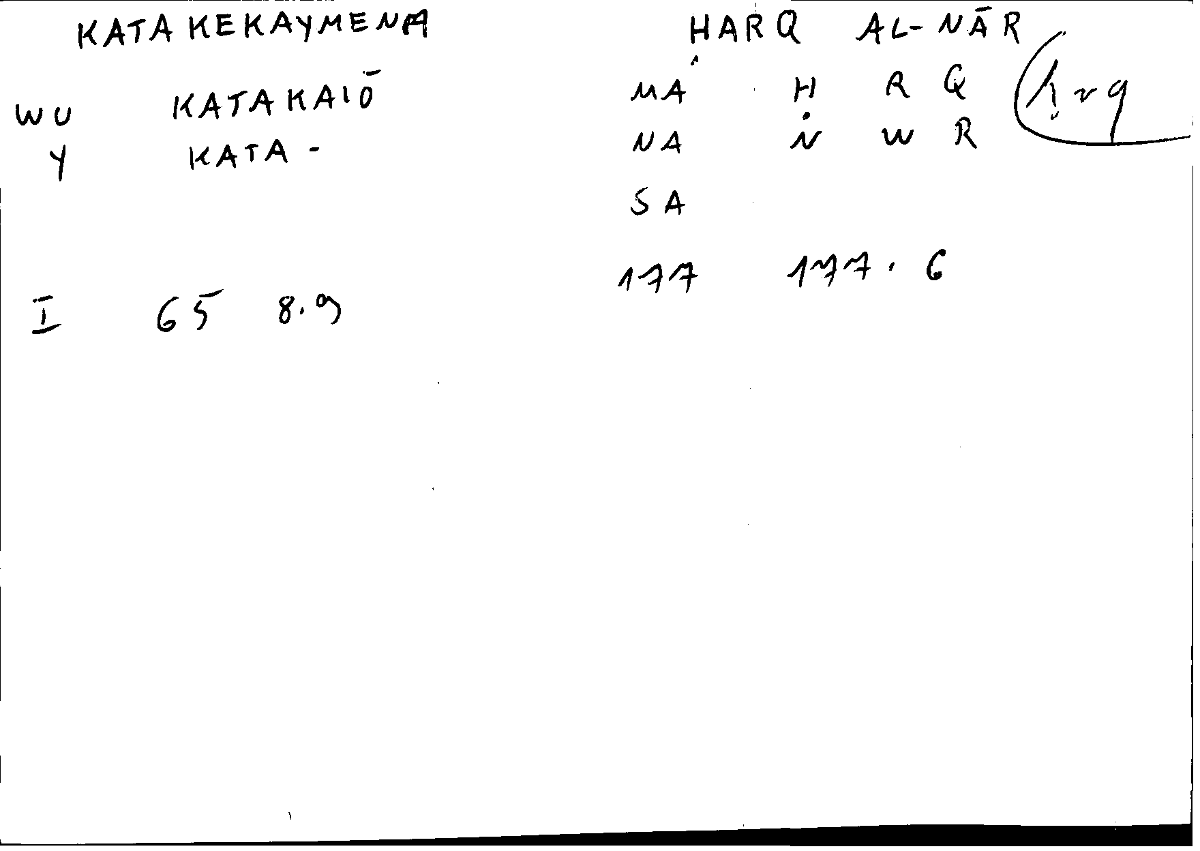 KATAKEKAYMENA HARQ AL-NĀR
WU KATAKAIŌ MA Ḥ R Q ḥrq
Y KATA- NA N W R
SA
177 177.6
I 65 8.9